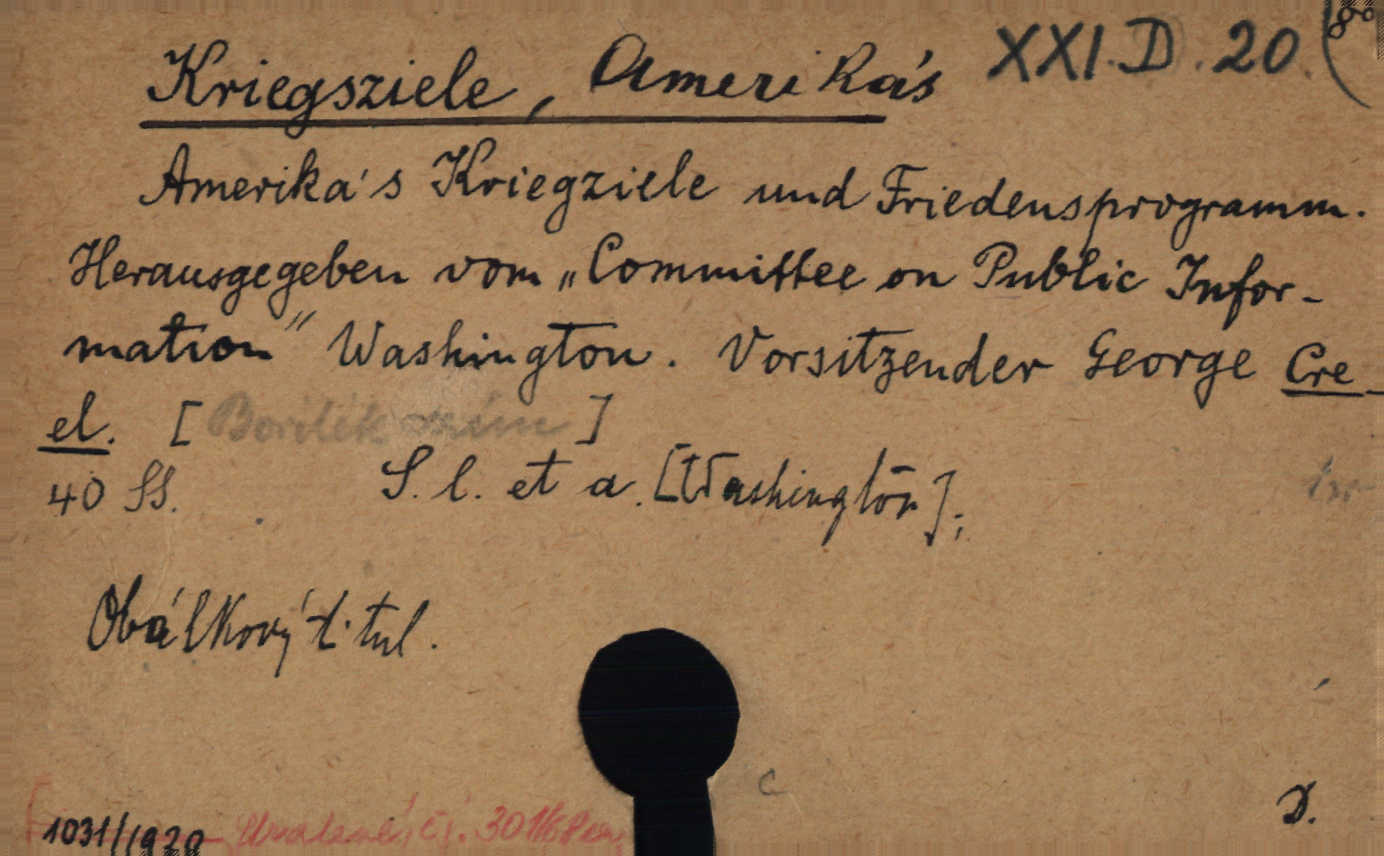 Kriegsziele, Amerika's XXI.D.20.
Amerika's Kriegziele und Friedensprogramm.
Herausgegeben vom „Committee on Public Infor-
mation" Washington. Vorsitzender George Cre-
el. [ ]
40 SS. S. l. et a. [Washington];
Obálkový titul.
c
D.
1031/1920